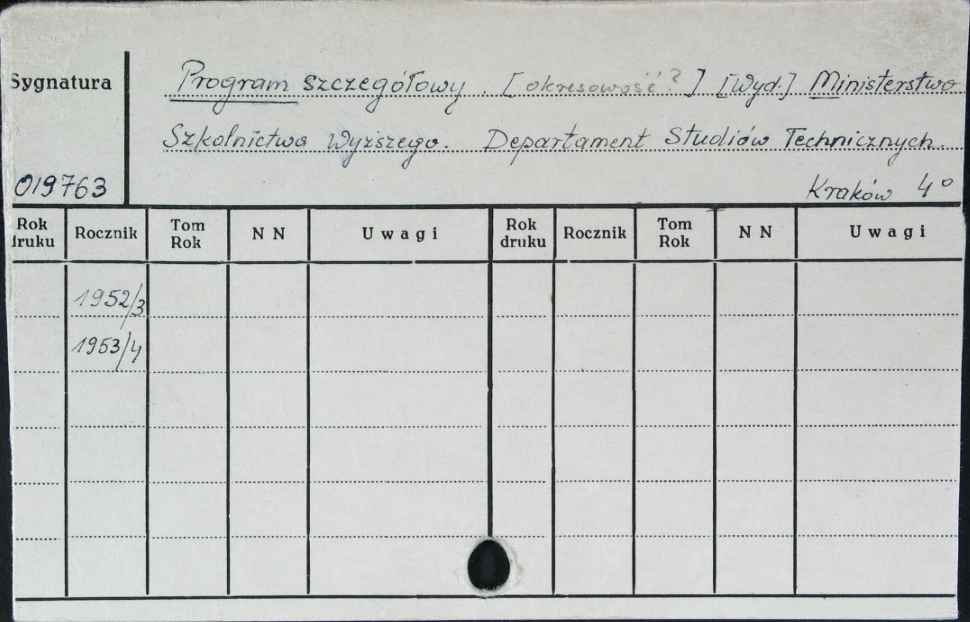 Sygnatura
Program szczegółowy. [okresowość?] [Wyd.] Ministerstwo
Szkolnictwa Wyższego. Departament Studiów Technicznych.
019763
Kraków 4°
Rok druku Rocznik Tom Rok N N Uwagi Rok druku Rocznik Tom Rok N N Uwagi
1952/3
1953/4